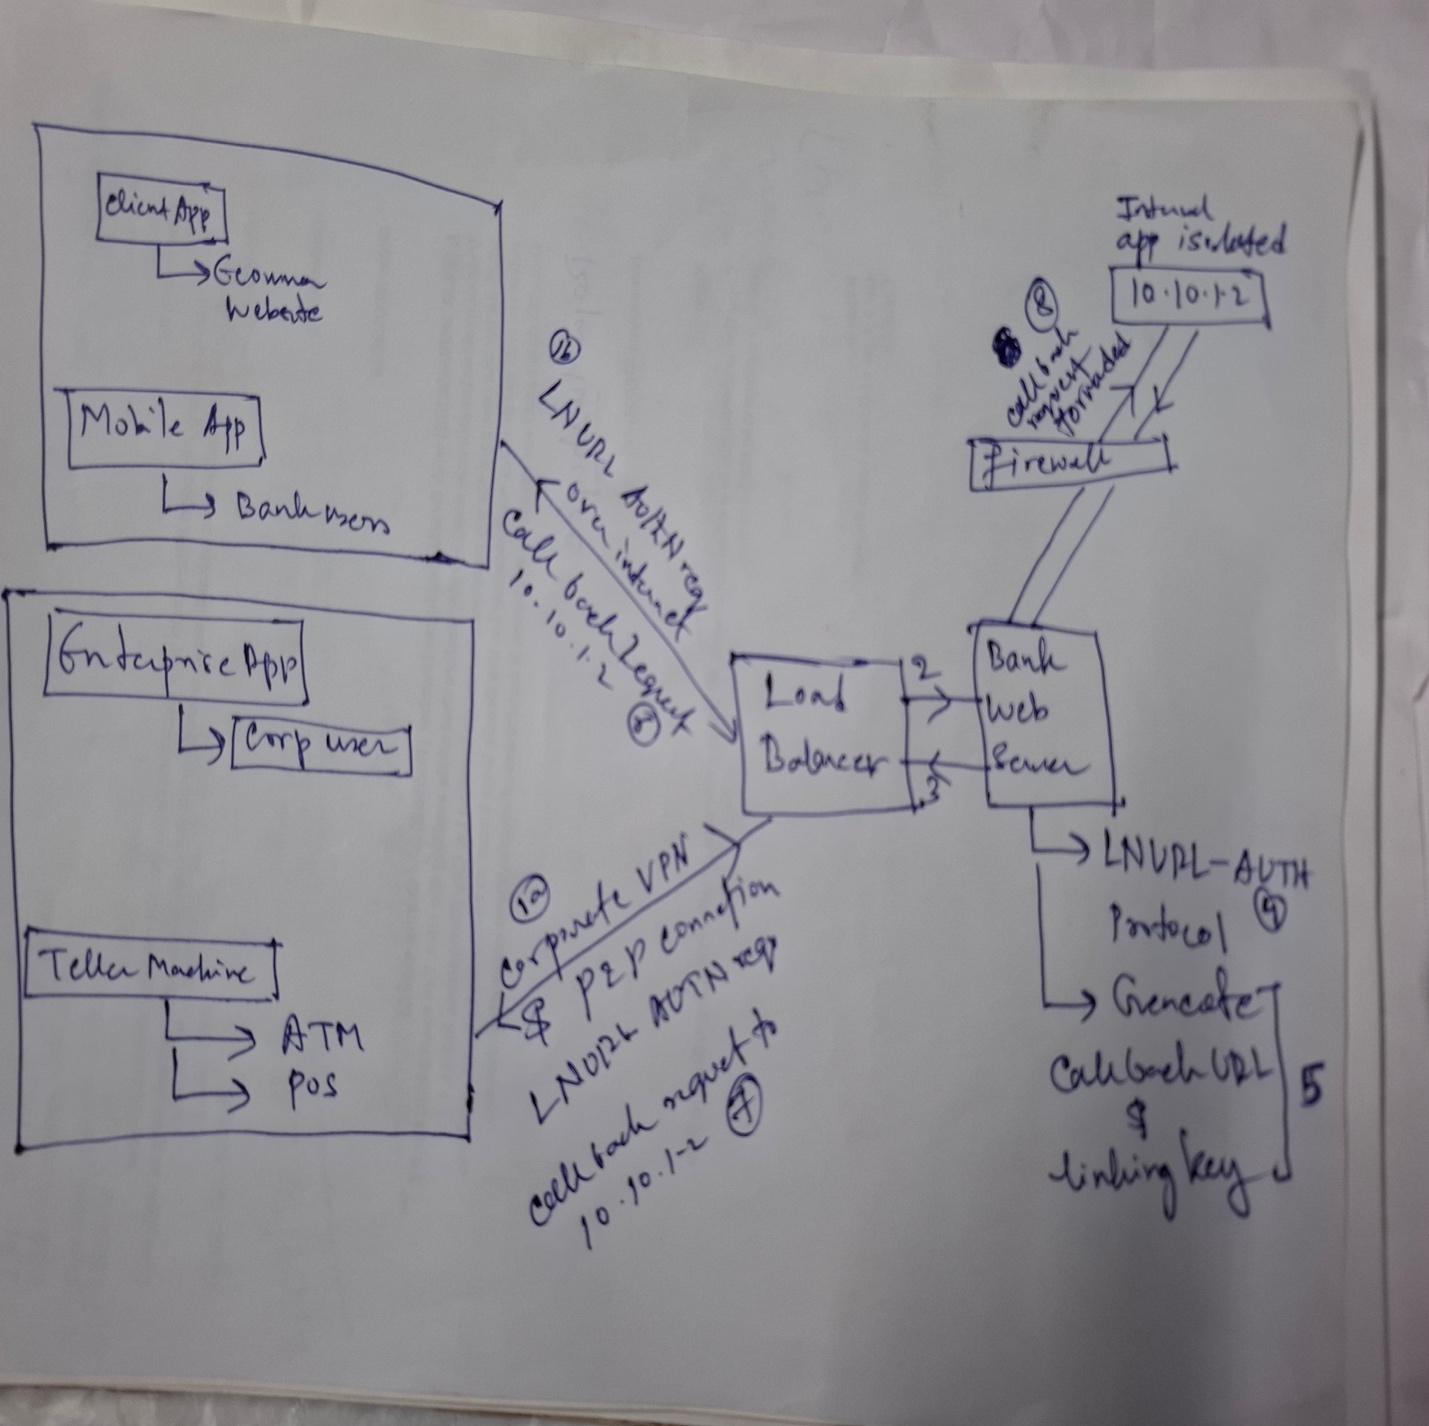 Client App
Website
Mobile App
Bank users
Enterprise App
Corp user
Teller Machine
ATM
POS
1b
LNURL AUTN req
over internet
Call back request
10.10.1.2
1a
Corporate VPN
& P2P connection
LNURL AUTN req
Call back request to
10.10.1.2
7
Load
Balancer
2
3
Bank
Web
Server
Firewall
8
Call back
request
forwaded
app isolated
10.10.1.2
LNURL-AUTH
Protocol 4
Generate
Callback URL
&
linking key
5